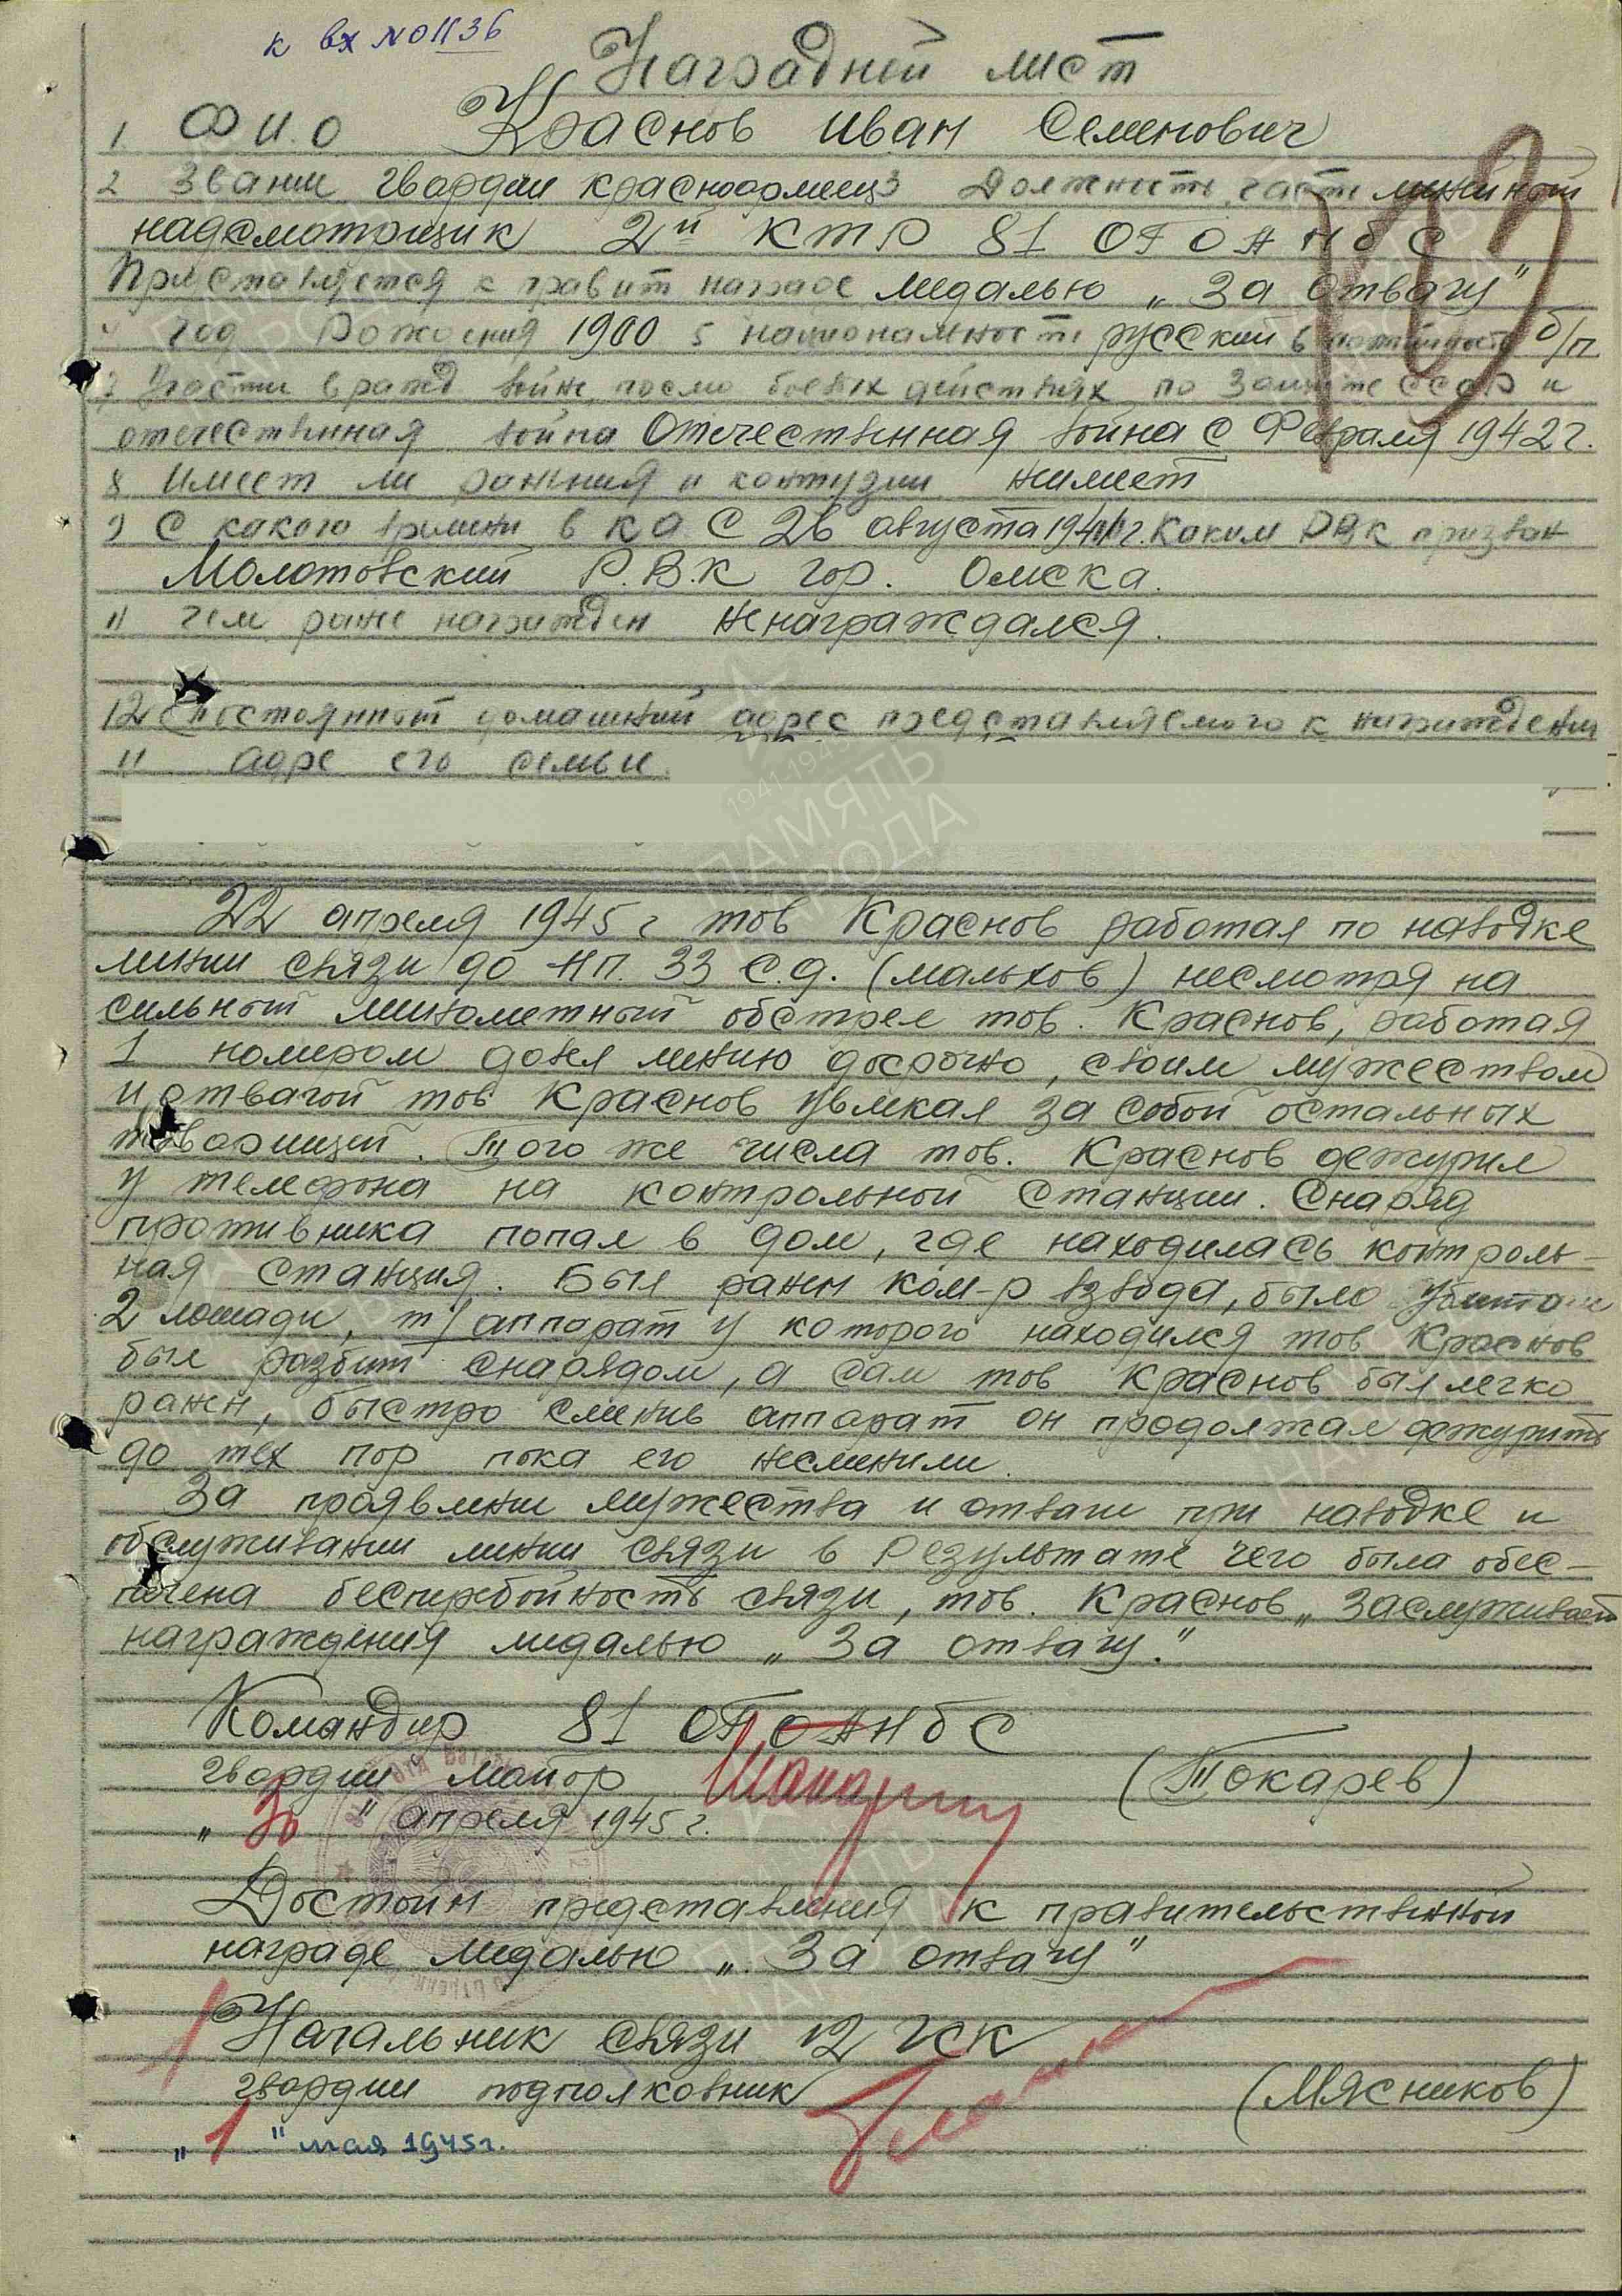 к вх №01136
Наградной лист
1. Ф И. О Краснов Иван Семенович
2 Звание гвардии красноармеец 3 Должность, часть линейный
надсмотрщик 2й КТР 81 ОГОАНБС
Представляется к правит награде медалью „За отвагу"
4 год Рождения 1900 5 национальность русский 6 партийность б/п
7 Участи в гражд войне, после боевых действиях по защите СССР и
отечественная война Отечественная война с Февраля 1942 г.
8 Имеет ли ранения и контузии неимеет
9 С какого времени в КА С 26 августа 1941 г. Каким РВК призван
Молотовский Р.В.К гор. Омска.
11 чем ранее награжден ненаграждался.
12 Постоянный домашний адрес представляемого к награждению
и адре его семьи
22 апреля 1945 г тов Краснов работая по наводке
линии связи до НП. 33 С.д. (мальхов) несмотря на
сильный минометный обстрел тов. Краснов, работая
1 номером довел линию досрочно, своим мужеством
и отвагой тов Краснов увлекая за собой остальных
товарищей. Того же числа тов. Краснов дежурил
у телефона на контрольной станции. Снаряд
противника попал в дом, где находилась контроль-
ная станция. Был ранен ком-р взвода, было убито
2 лошади, т/аппарат у которого находился тов Краснов
был разбит снарядом, а сам тов Краснов был легко
ранен, быстро сменив аппарат он продолжал дежурить
до тех пор пока его несменили.
За проявлении мужества и отваги при наводке и
обслуживании линии связи в Результате чего была обес-
печена бесперебойность связи, тов. Краснов „ заслуживает
награждения медалью „За отвагу."
Командир 81 ОГОАНБС
гвардии майор (Токарев)
„30" апреля 1945 г.
Достоин представления к правительственной
награде медалью „За отвагу"
Начальник связи 12 ГСК
гвардии подполковник (Мясников)
„1" мая 1945г.
ПАМЯТЬ
НАРОДА
1941-1945